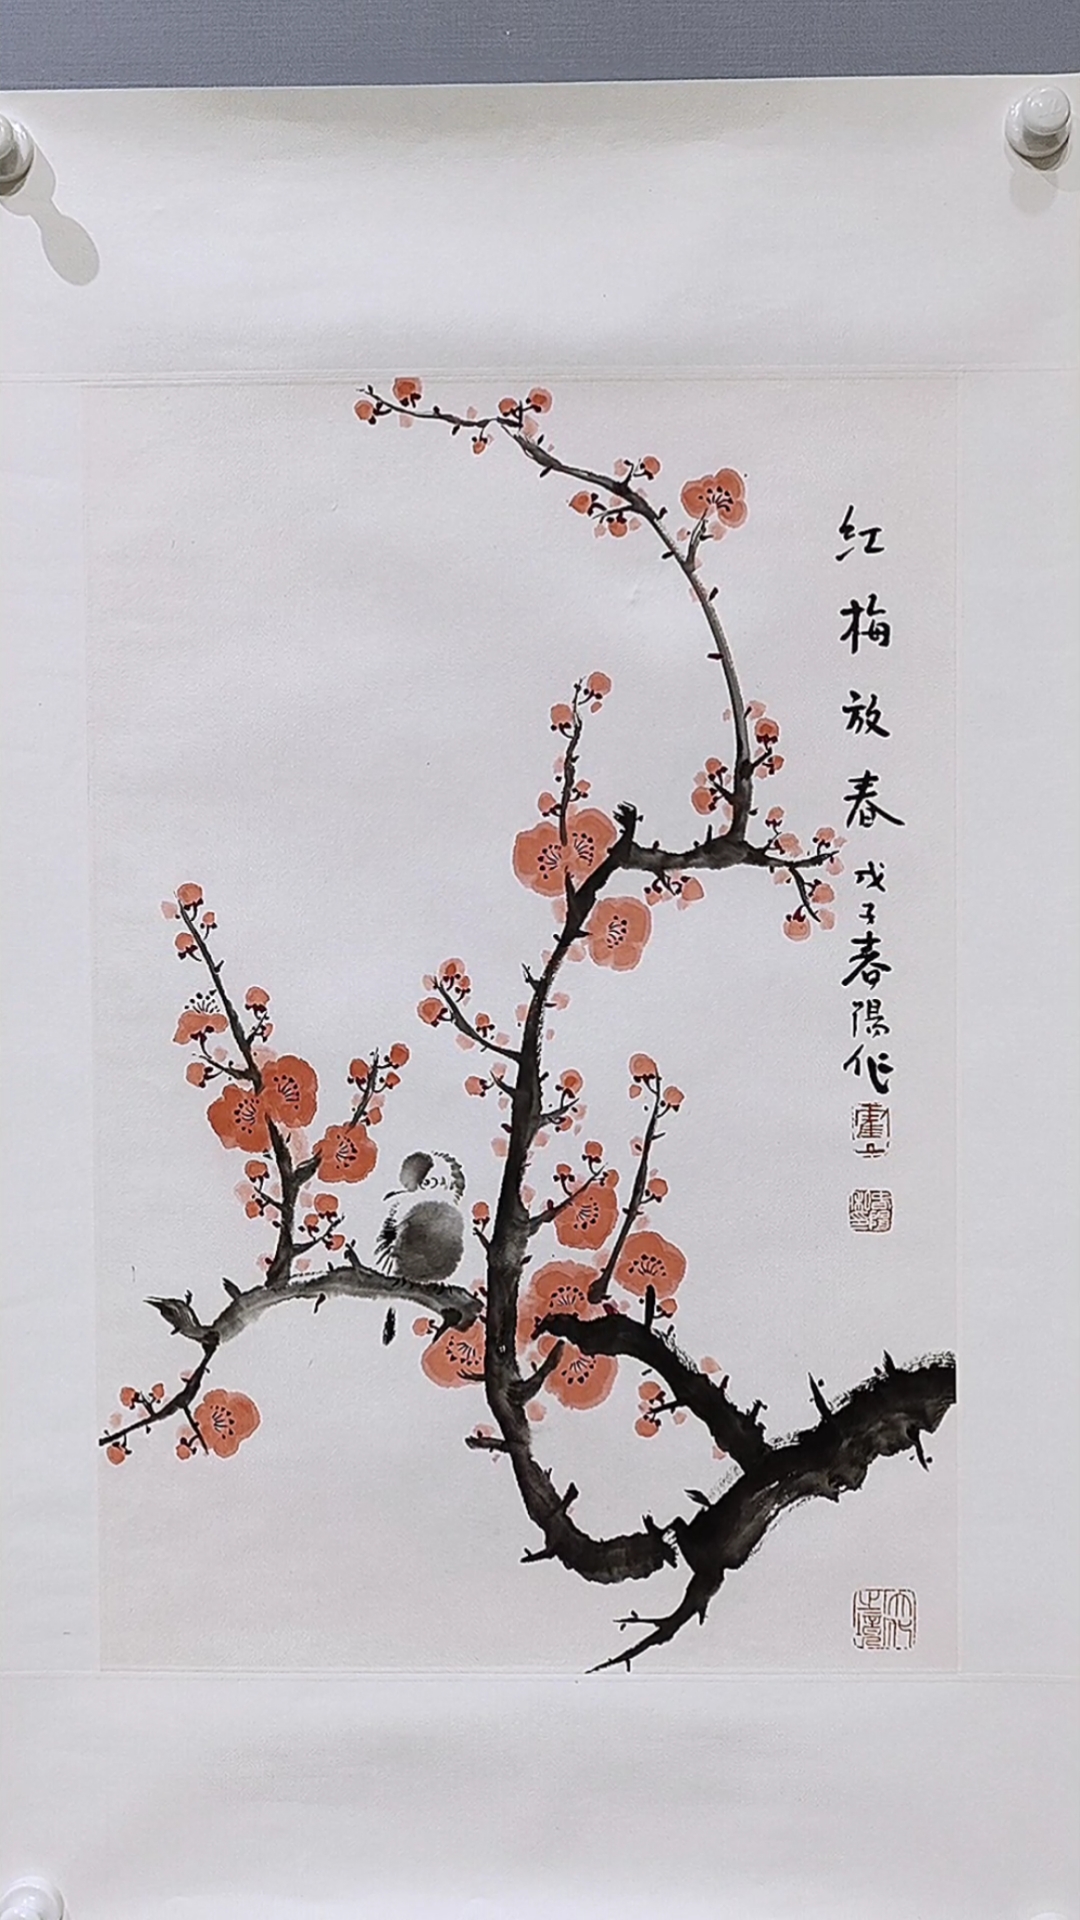 红梅放春 戊子春陽作